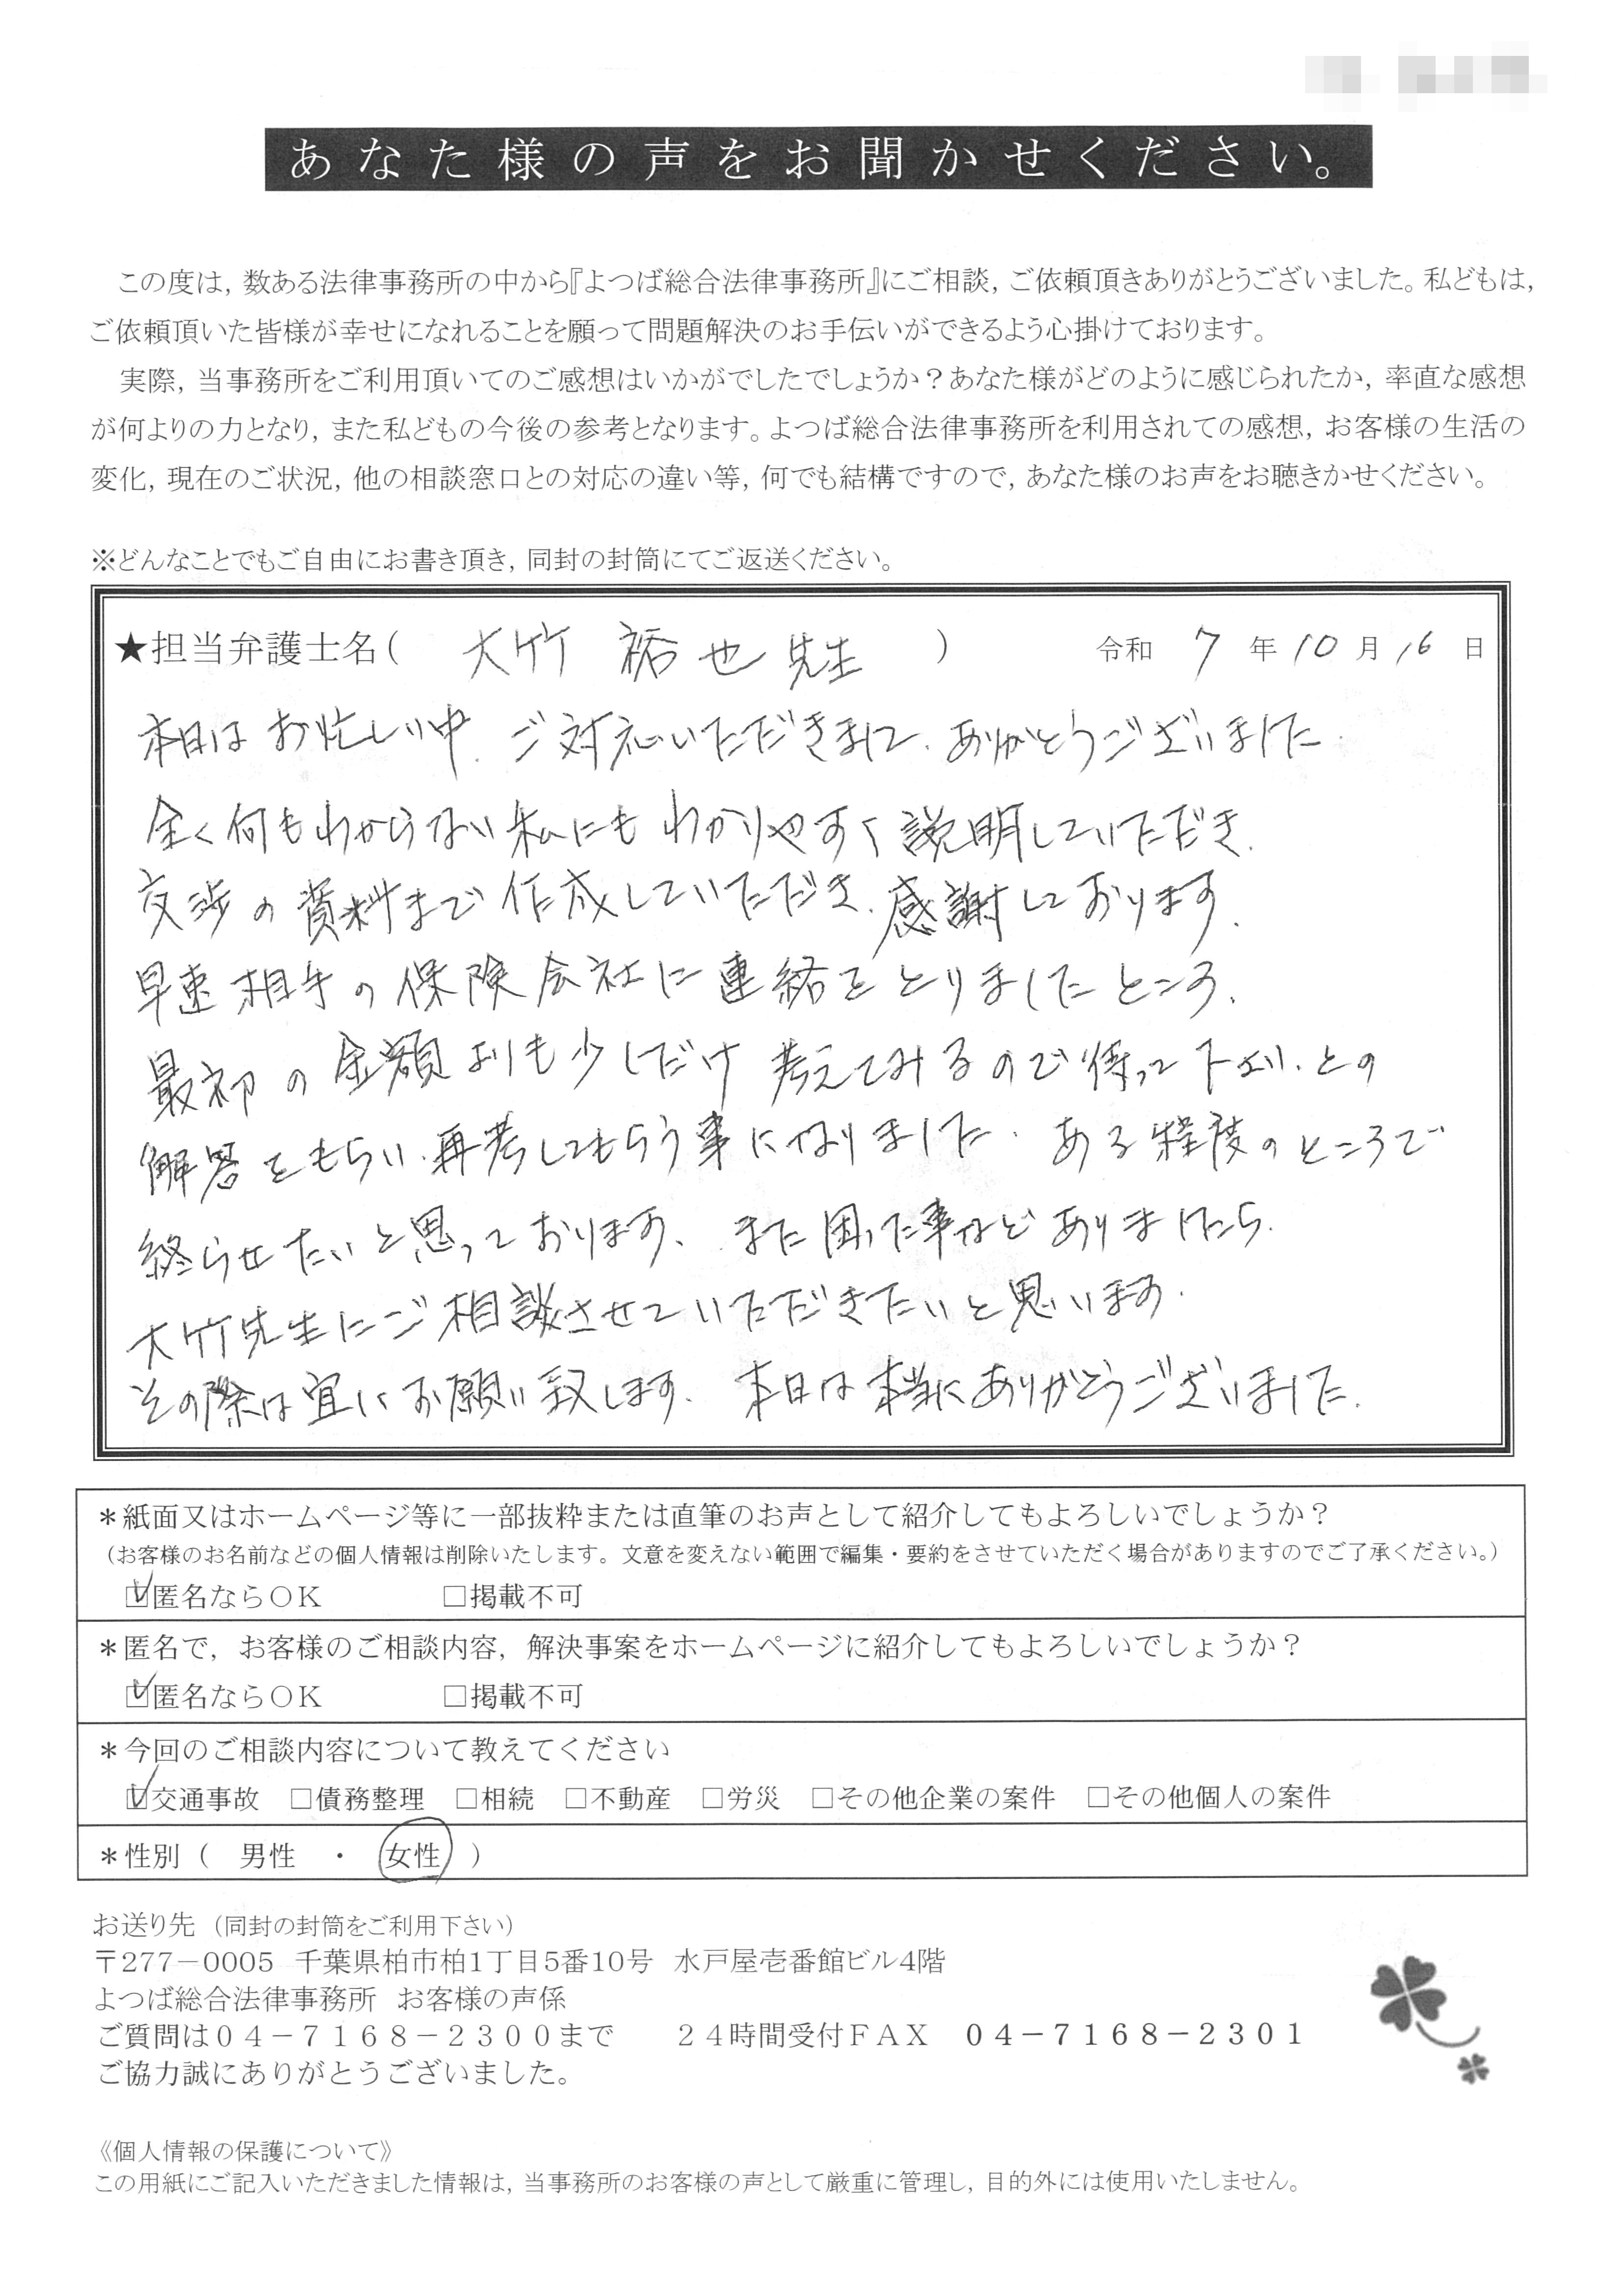 あなた様の声をお聞かせください。
この度は，数ある法律事務所の中から『よつば総合法律事務所』にご相談，ご依頼頂きありがとうございました。私どもは，
ご依頼頂いた皆様が幸せになれることを願って問題解決のお手伝いができるよう心掛けております。
実際，当事務所をご利用頂いてのご感想はいかがでしたでしょうか？あなた様がどのように感じられたか，率直な感想
が何よりの力となり，また私どもの今後の参考となります。よつば総合法律事務所を利用されての感想，お客様の生活の
変化，現在のご状況，他の相談窓口との対応の違い等，何でも結構ですので，あなた様のお声をお聴きかせください。
※どんなことでもご自由にお書き頂き，同封の封筒にてご返送ください。
★担当弁護士名（ 大竹 裕也 先生 ） 令和 7 年 10 月 16 日
本日はお忙しい中、ご対応いただきまして、ありがとうございました。
全く何もわからない私にもわかりやすく説明していただき、
交渉の資料まで作成していただき、感謝しております。
早速相手の保険会社に連絡をとりましたところ、
最初の金額よりも少しだけ考えてみるので待って下さい、との
解答をもらい、再考してもらう事になりました。ある程度のところで
終らせたいと思っております、また困った事などありましたら、
大竹先生にご相談させていただきたいと思います。
その際は宜しくお願い致します、本日は本当にありがとうございました。
＊紙面又はホームページ等に一部抜粋または直筆のお声として紹介してもよろしいでしょうか？
（お客様のお名前などの個人情報は削除いたします。文意を変えない範囲で編集・要約をさせていただく場合がありますのでご了承ください。）
☑匿名ならＯＫ □掲載不可
＊匿名で，お客様のご相談内容，解決事案をホームページに紹介してもよろしいでしょうか？
☑匿名ならＯＫ □掲載不可
＊今回のご相談内容について教えてください
☑交通事故 □債務整理 □相続 □不動産 □労災 □その他企業の案件 □その他個人の案件
＊性別（ 男性 ・ 女性 ）
お送り先（同封の封筒をご利用下さい）
〒277－0005 千葉県柏市柏1丁目5番10号 水戸屋壱番館ビル4階
よつば総合法律事務所 お客様の声係
ご質問は０４－７１６８－２３００まで ２４時間受付ＦＡＸ ０４－７１６８－２３０１
ご協力誠にありがとうございました。
《個人情報の保護について》
この用紙にご記入いただきました情報は，当事務所のお客様の声として厳重に管理し，目的外には使用いたしません。